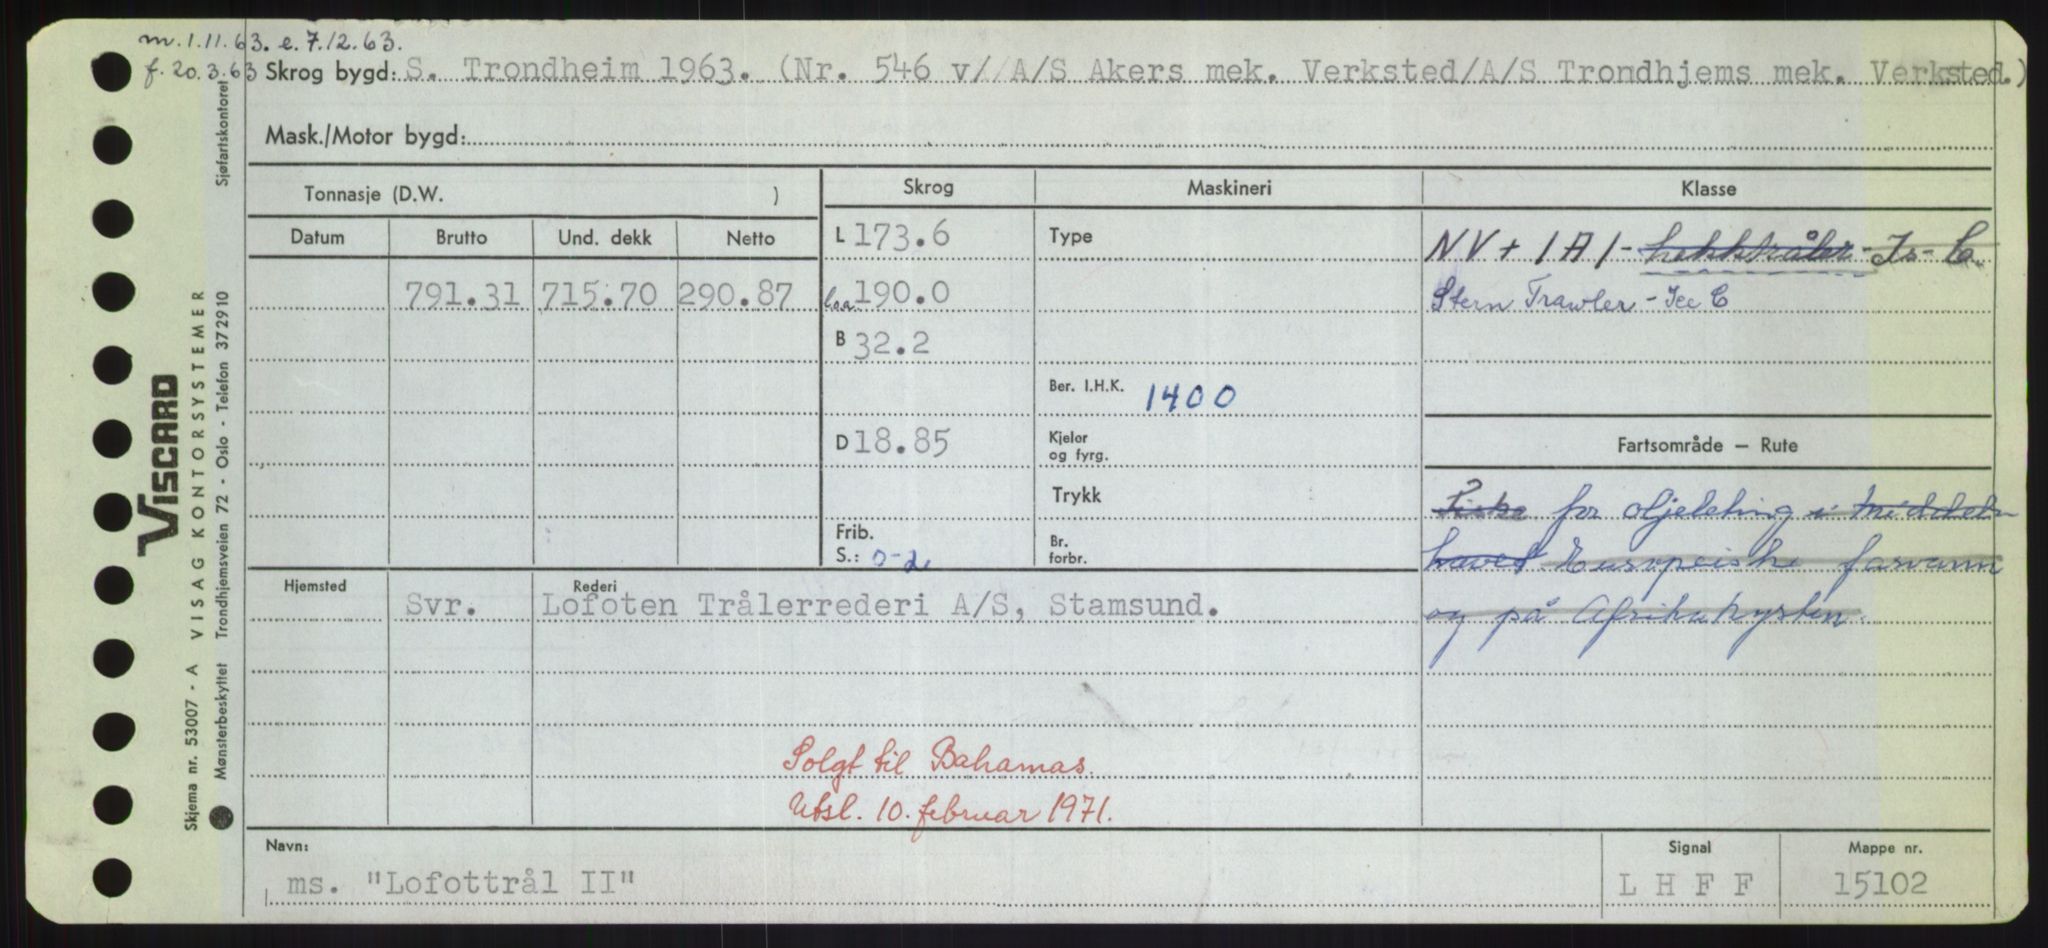 m. 1.11.63. e. 7.12.63.
f. 20.3.63 Skrog bygd: S. Trondheim 1963. (Nr. 546 v//A/S Akers mek. Verksted/A/S Trondhjems mek. Verksted.)
Mask./Motor bygd:
Tonnasje (D.W. ) Skrog Maskineri Klasse
Datum Brutto Und. dekk Netto L 173.6 Type NV + 1A1 - hekktråler - Is - C.
791.31 715.70 290.87 loa. 190.0 Stern Trawler - Ice C
B 32.2
Ber. I.H.K. 1400
D 18.85 Kjeler og fyrg. Fartsområde — Rute
Trykk Fiske for oljeleting i Middel-
Frib. S.: 0-2 Br. forbr. havet Europeiske farvann
Hjemsted Rederi
Svr. Lofoten Trålerrederi A/S, Stamsund. og på Afrikakysten.
Solgt til Bahamas.
Utsl. 10. februar 1971.
Navn: Signal Mappe nr.
ms. "Lofottrål II" L H F F 15102
VISCARD
Skjema nr. 53007 - A VISAG KONTORSYSTEMER
Mønsterbeskyttet Trondhjemsveien 72 - Oslo - Telefon 372910 Sjøfartskontoret